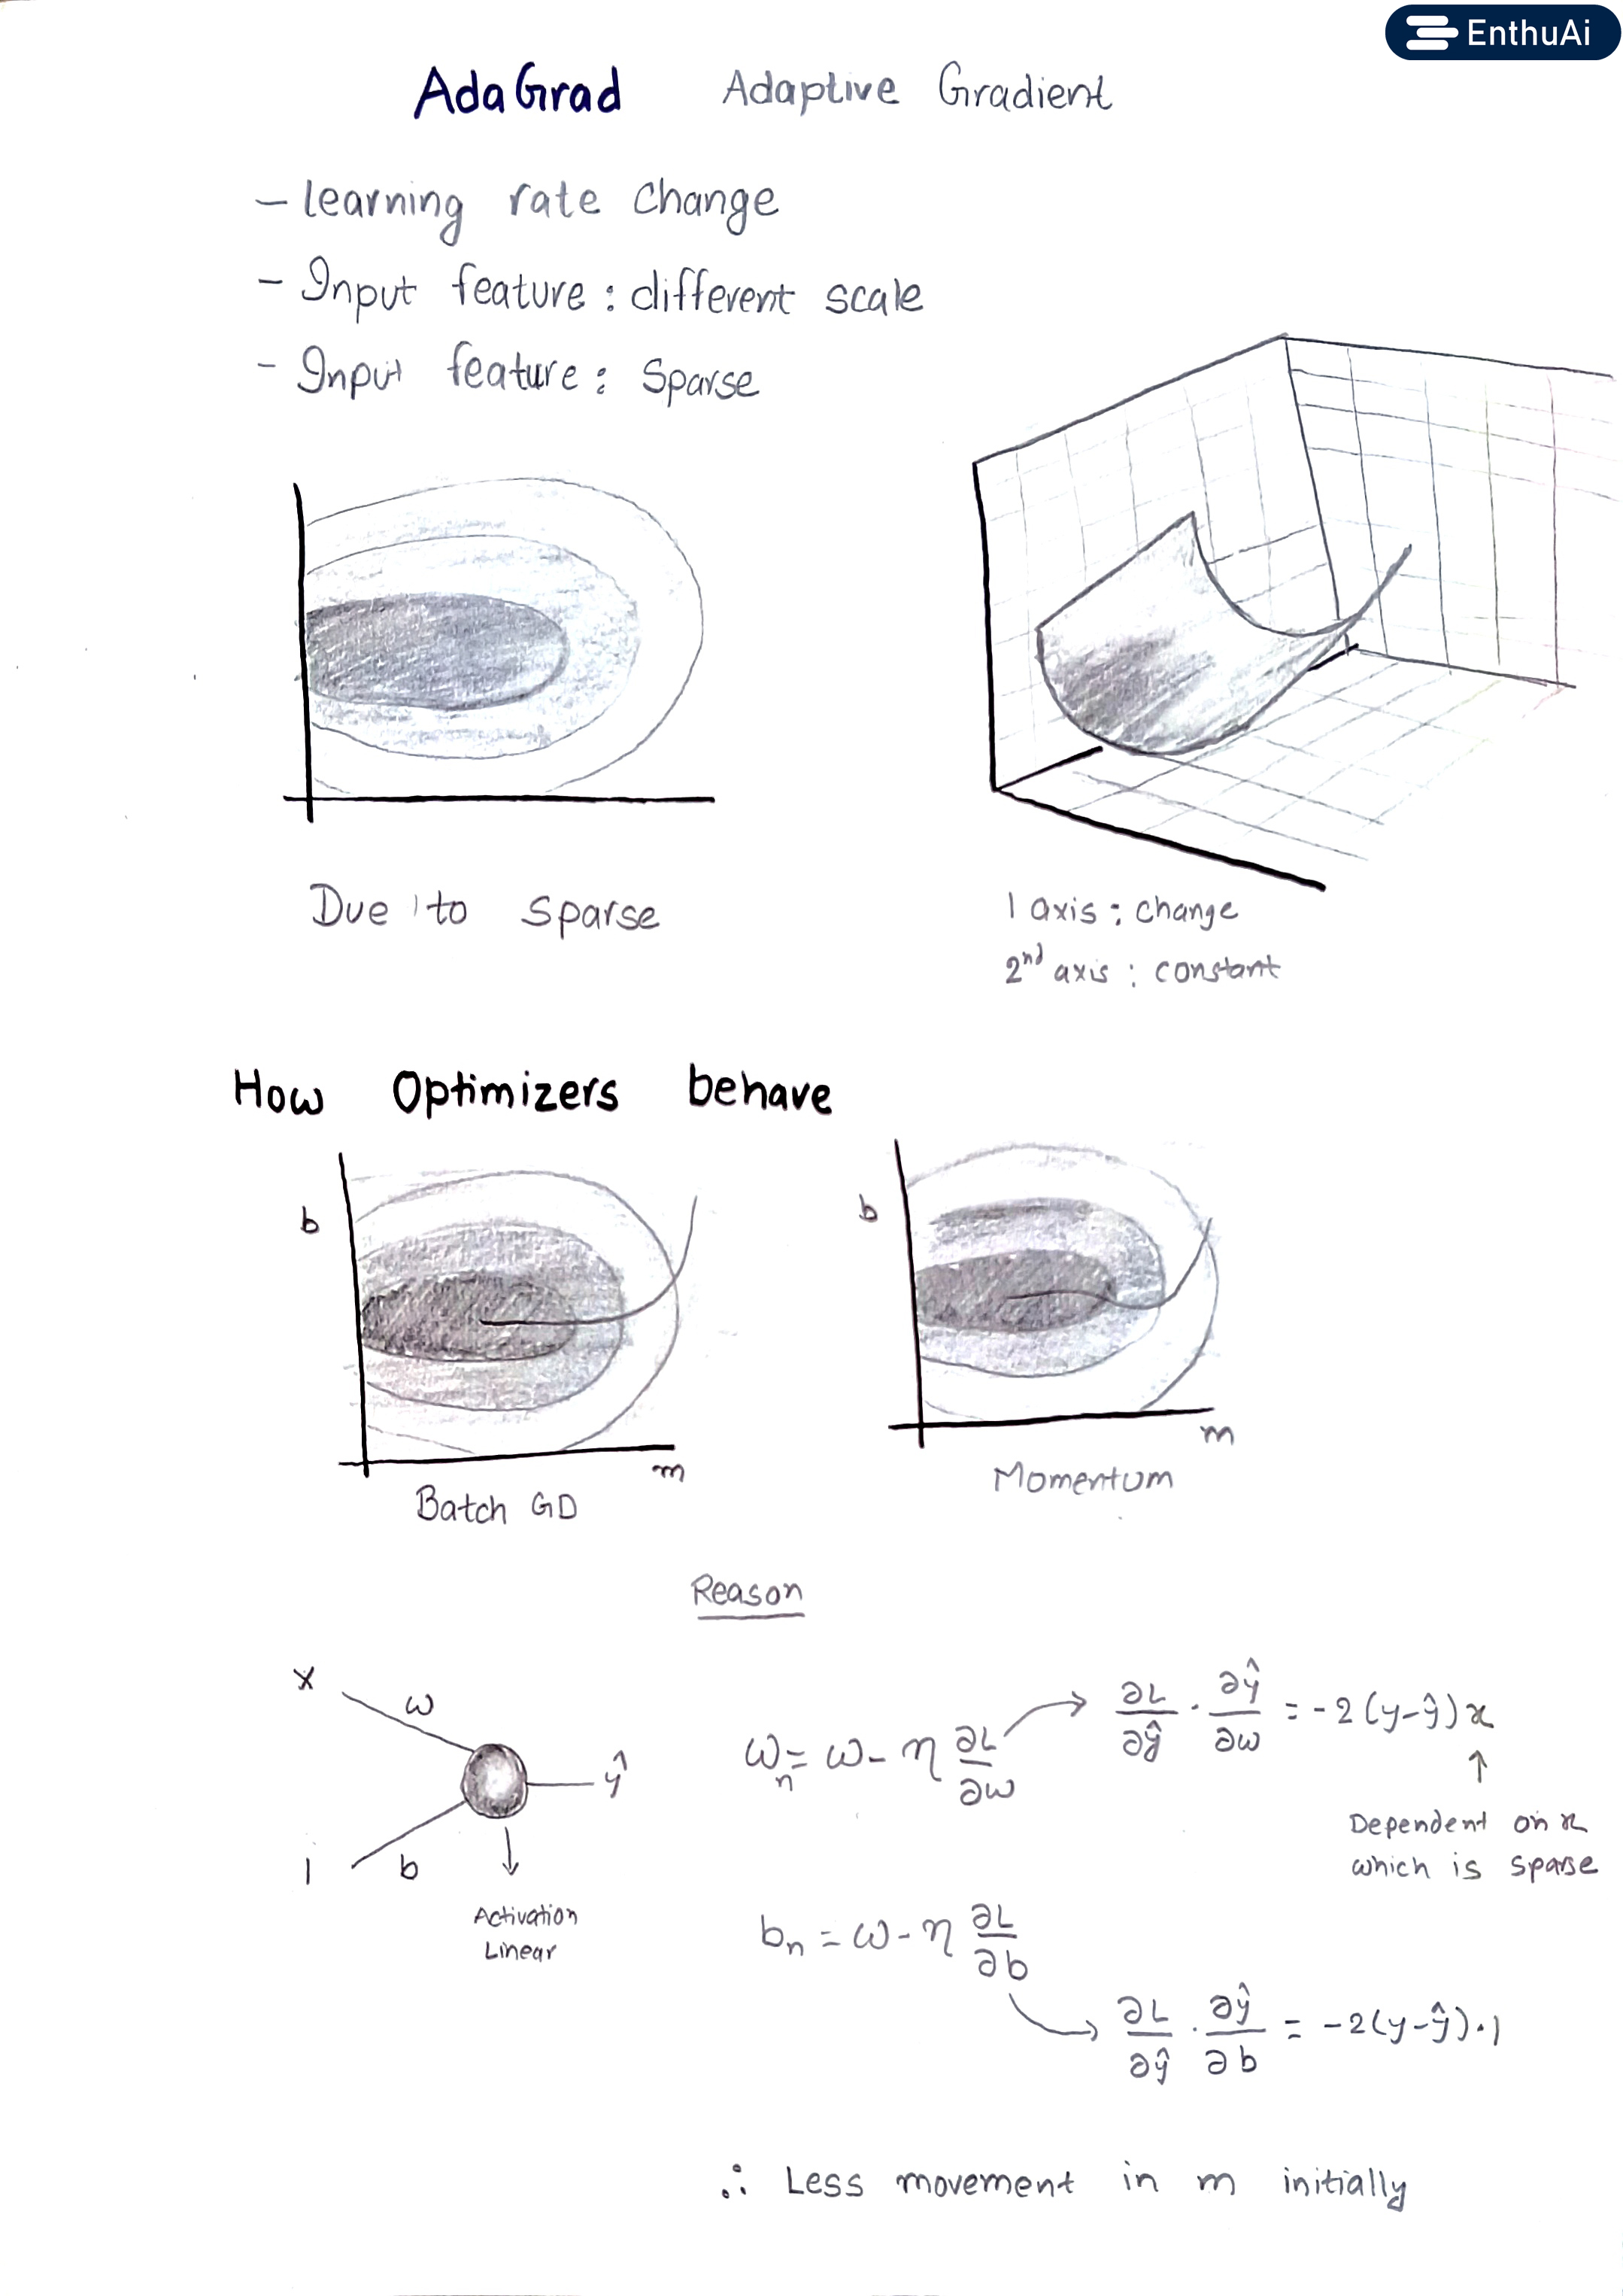 EnthuAi
AdaGrad Adaptive Gradient
- learning rate change
- Input feature : different scale
- Input feature : Sparse
Due to sparse
1 axis : change
2nd axis : constant
How Optimizers behave
b
m
Batch GD
b
m
Momentum
Reason
x
w
ŷ
1
b
Activation
Linear
ωn = ω - η ∂L/∂ω
∂L/∂ŷ · ∂ŷ/∂ω = -2(y-ŷ)x
↑
Dependent on x
which is sparse
bn = ω - η ∂L/∂b
∂L/∂ŷ · ∂ŷ/∂b = -2(y-ŷ)·1
∴ Less movement in m initially